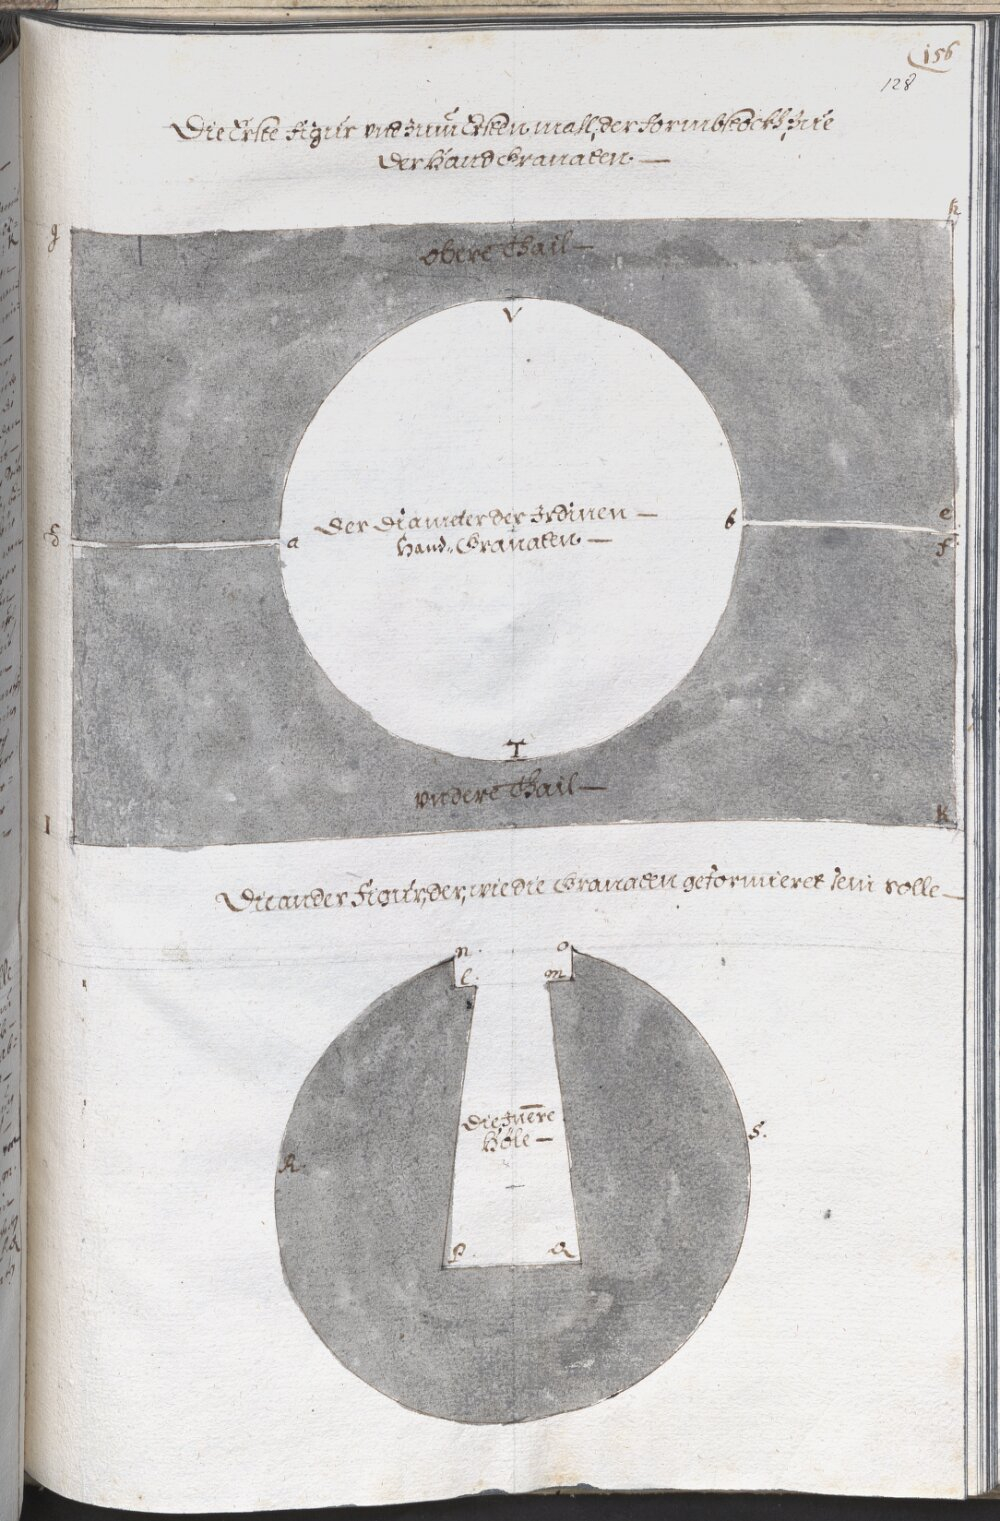 156
128
Die Erste figur vnd zum Ersten mall, der formbstöckh, zue
der Hand Granaten. —
g
h
obere thail —
V
Der Diameter der Irdinen —
Hand-Granaten. —
a
b
e
f
T
vndere thail —
I
k
Die ander figur, der, wie die Granaten geformieret sein solle —
n. o
l. m
Die Inere
Höle —
R. S.
P. Q